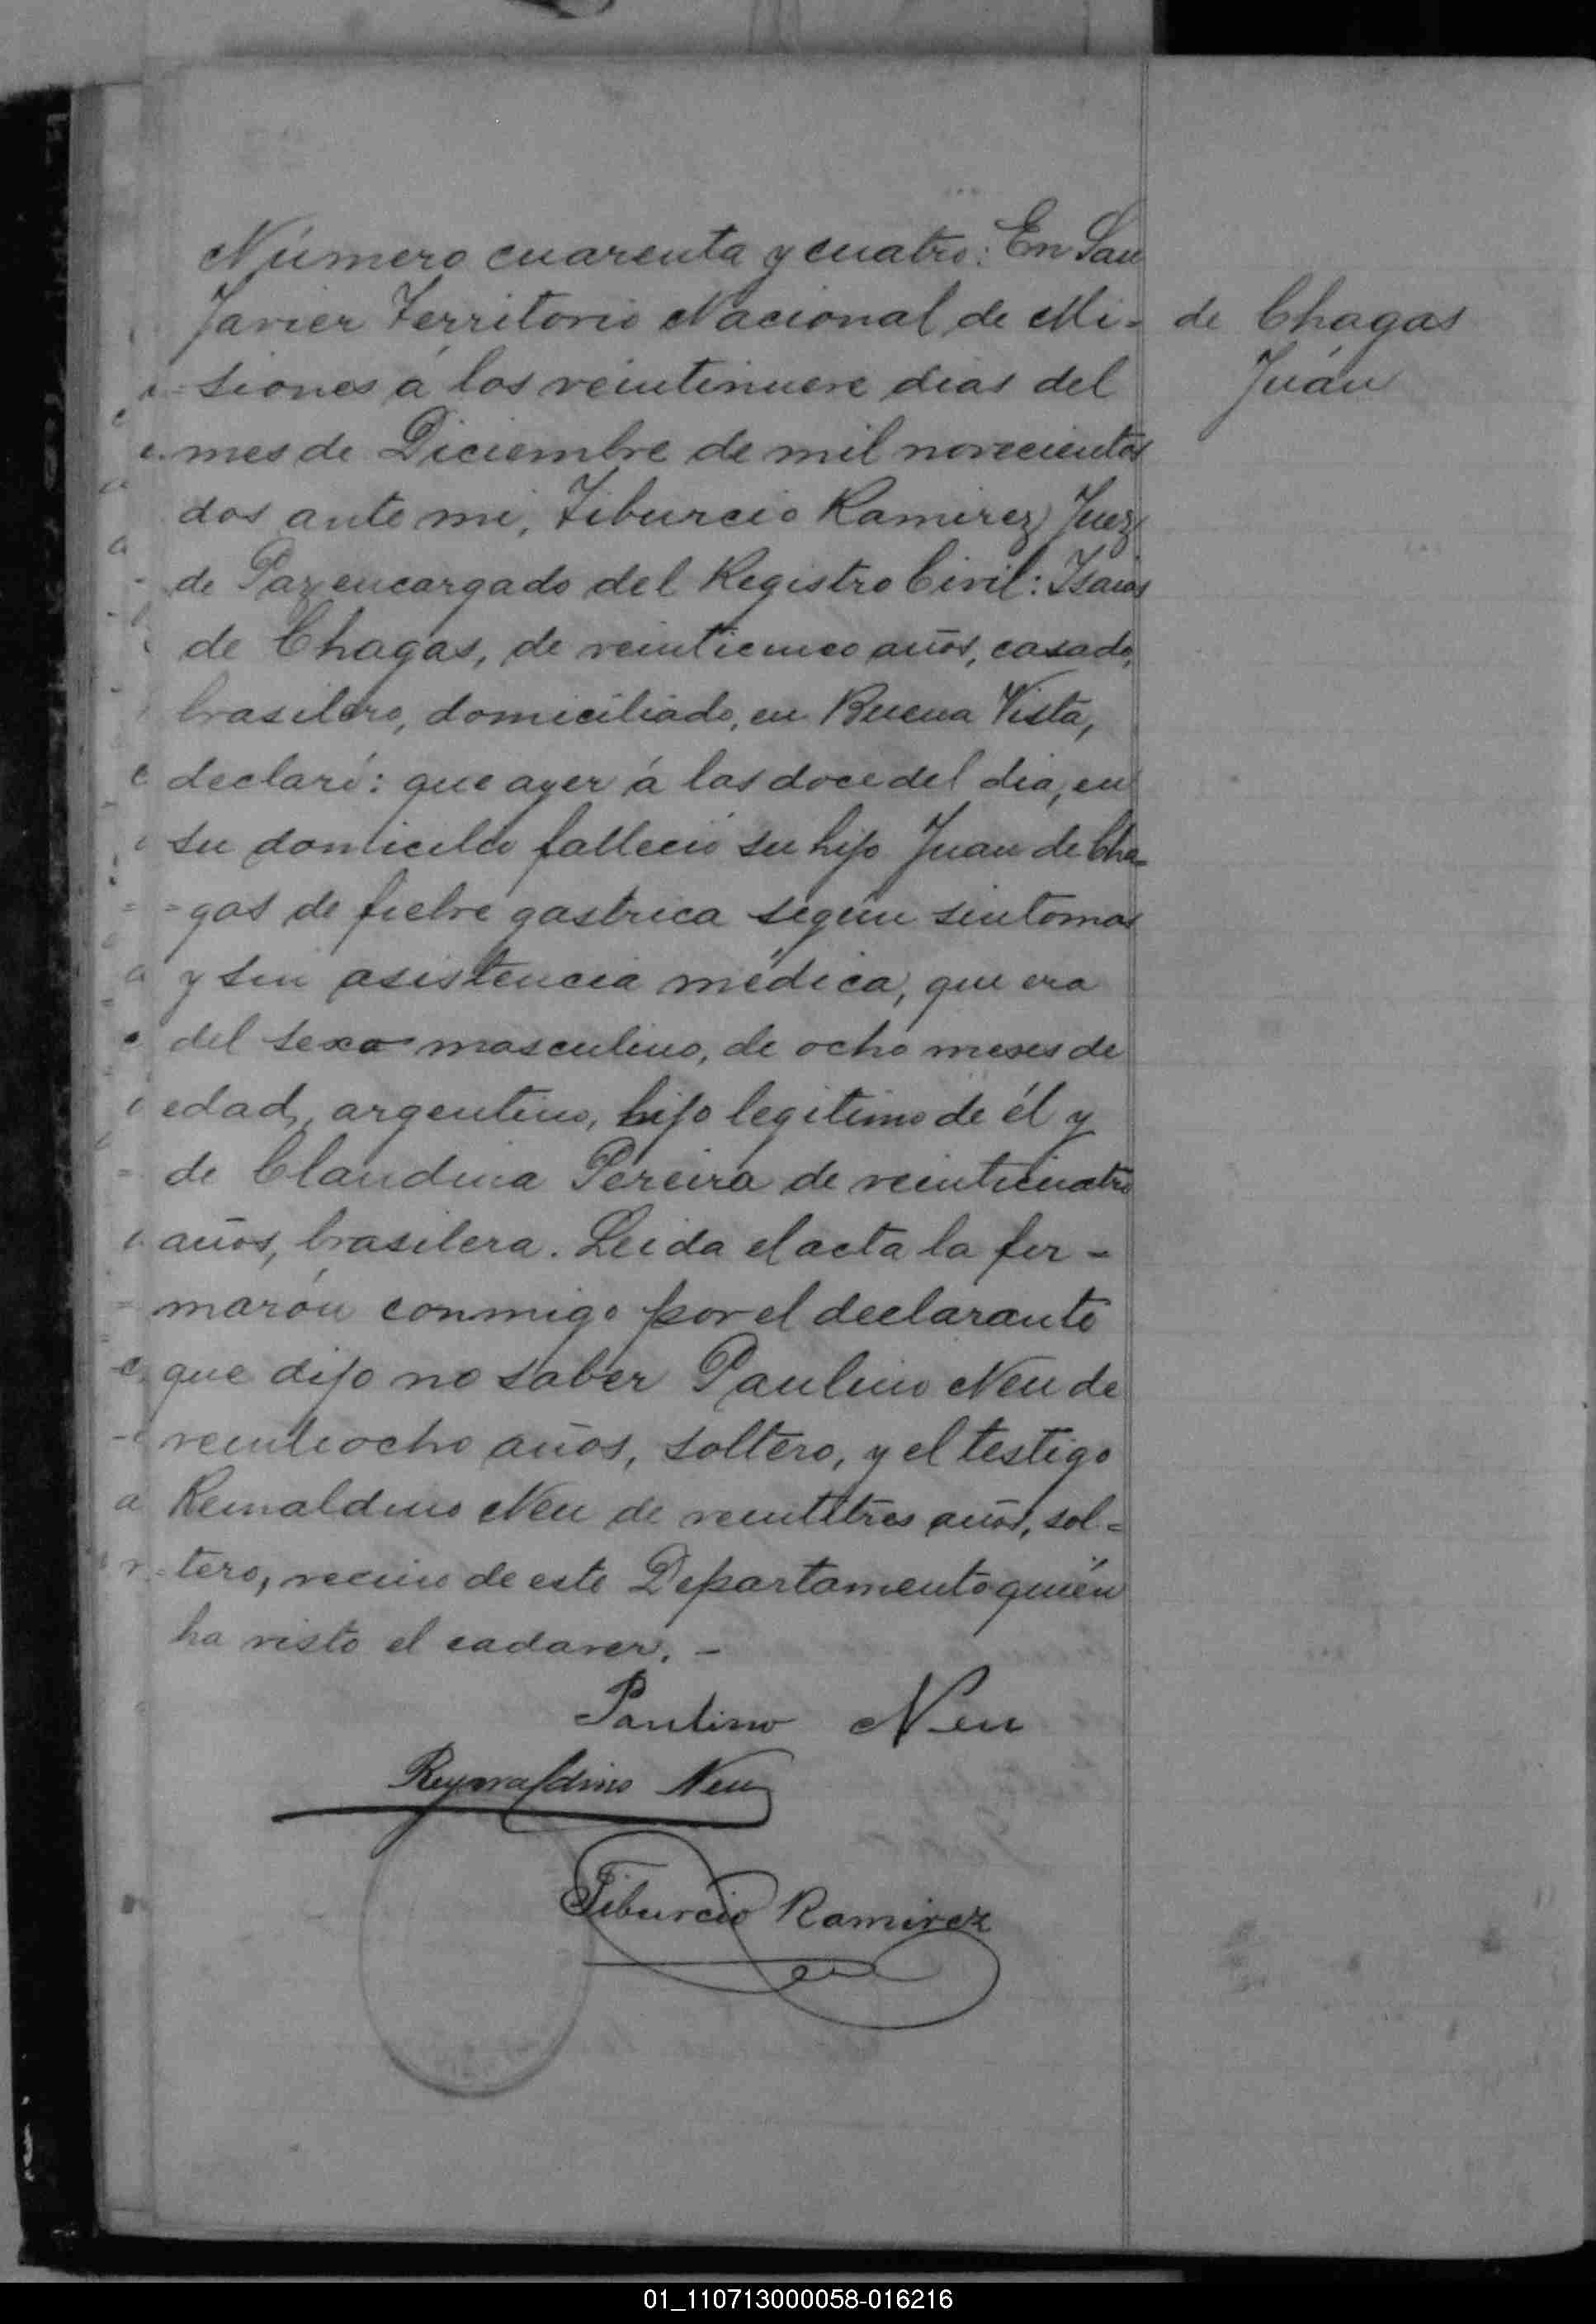 Número cuarenta y cuatro: En San
Javier Territorio Nacional de Mi-
de Chagas
Juán
siones á los veintinueve dias del
mes de Diciembre de mil novecientos
dos ante mi, Tiburcio Ramirez Juez
de Paz encargado del Registro Civil: Isaias
de Chagas, de veinticinco años, casado,
brasilero, domiciliado, en Buena Vista,
declaró: que ayer á las doce del dia, en
su domicilio falleció su hijo Juan de Cha-
=gas de fiebre gastrica según sintomas
y sin asistencia médica, que era
del sexo masculino, de ocho meses de
edad, argentino, hijo legitimo de él y
de Claudina Pereira de veinticuatro
años, brasilera. Leida el acta la fir-
marón conmigo por el declarante
que dijo no saber Paulino Neu de
veintiocho años, soltero, y el testigo
Reinaldino Neu de veintitres años, sol=
tero, vecino de este Departamento quién
ha visto el cadaver. -
Paulino Neu
Reynaldino Neu
Tiburcio Ramirez
01_110713000058-016216